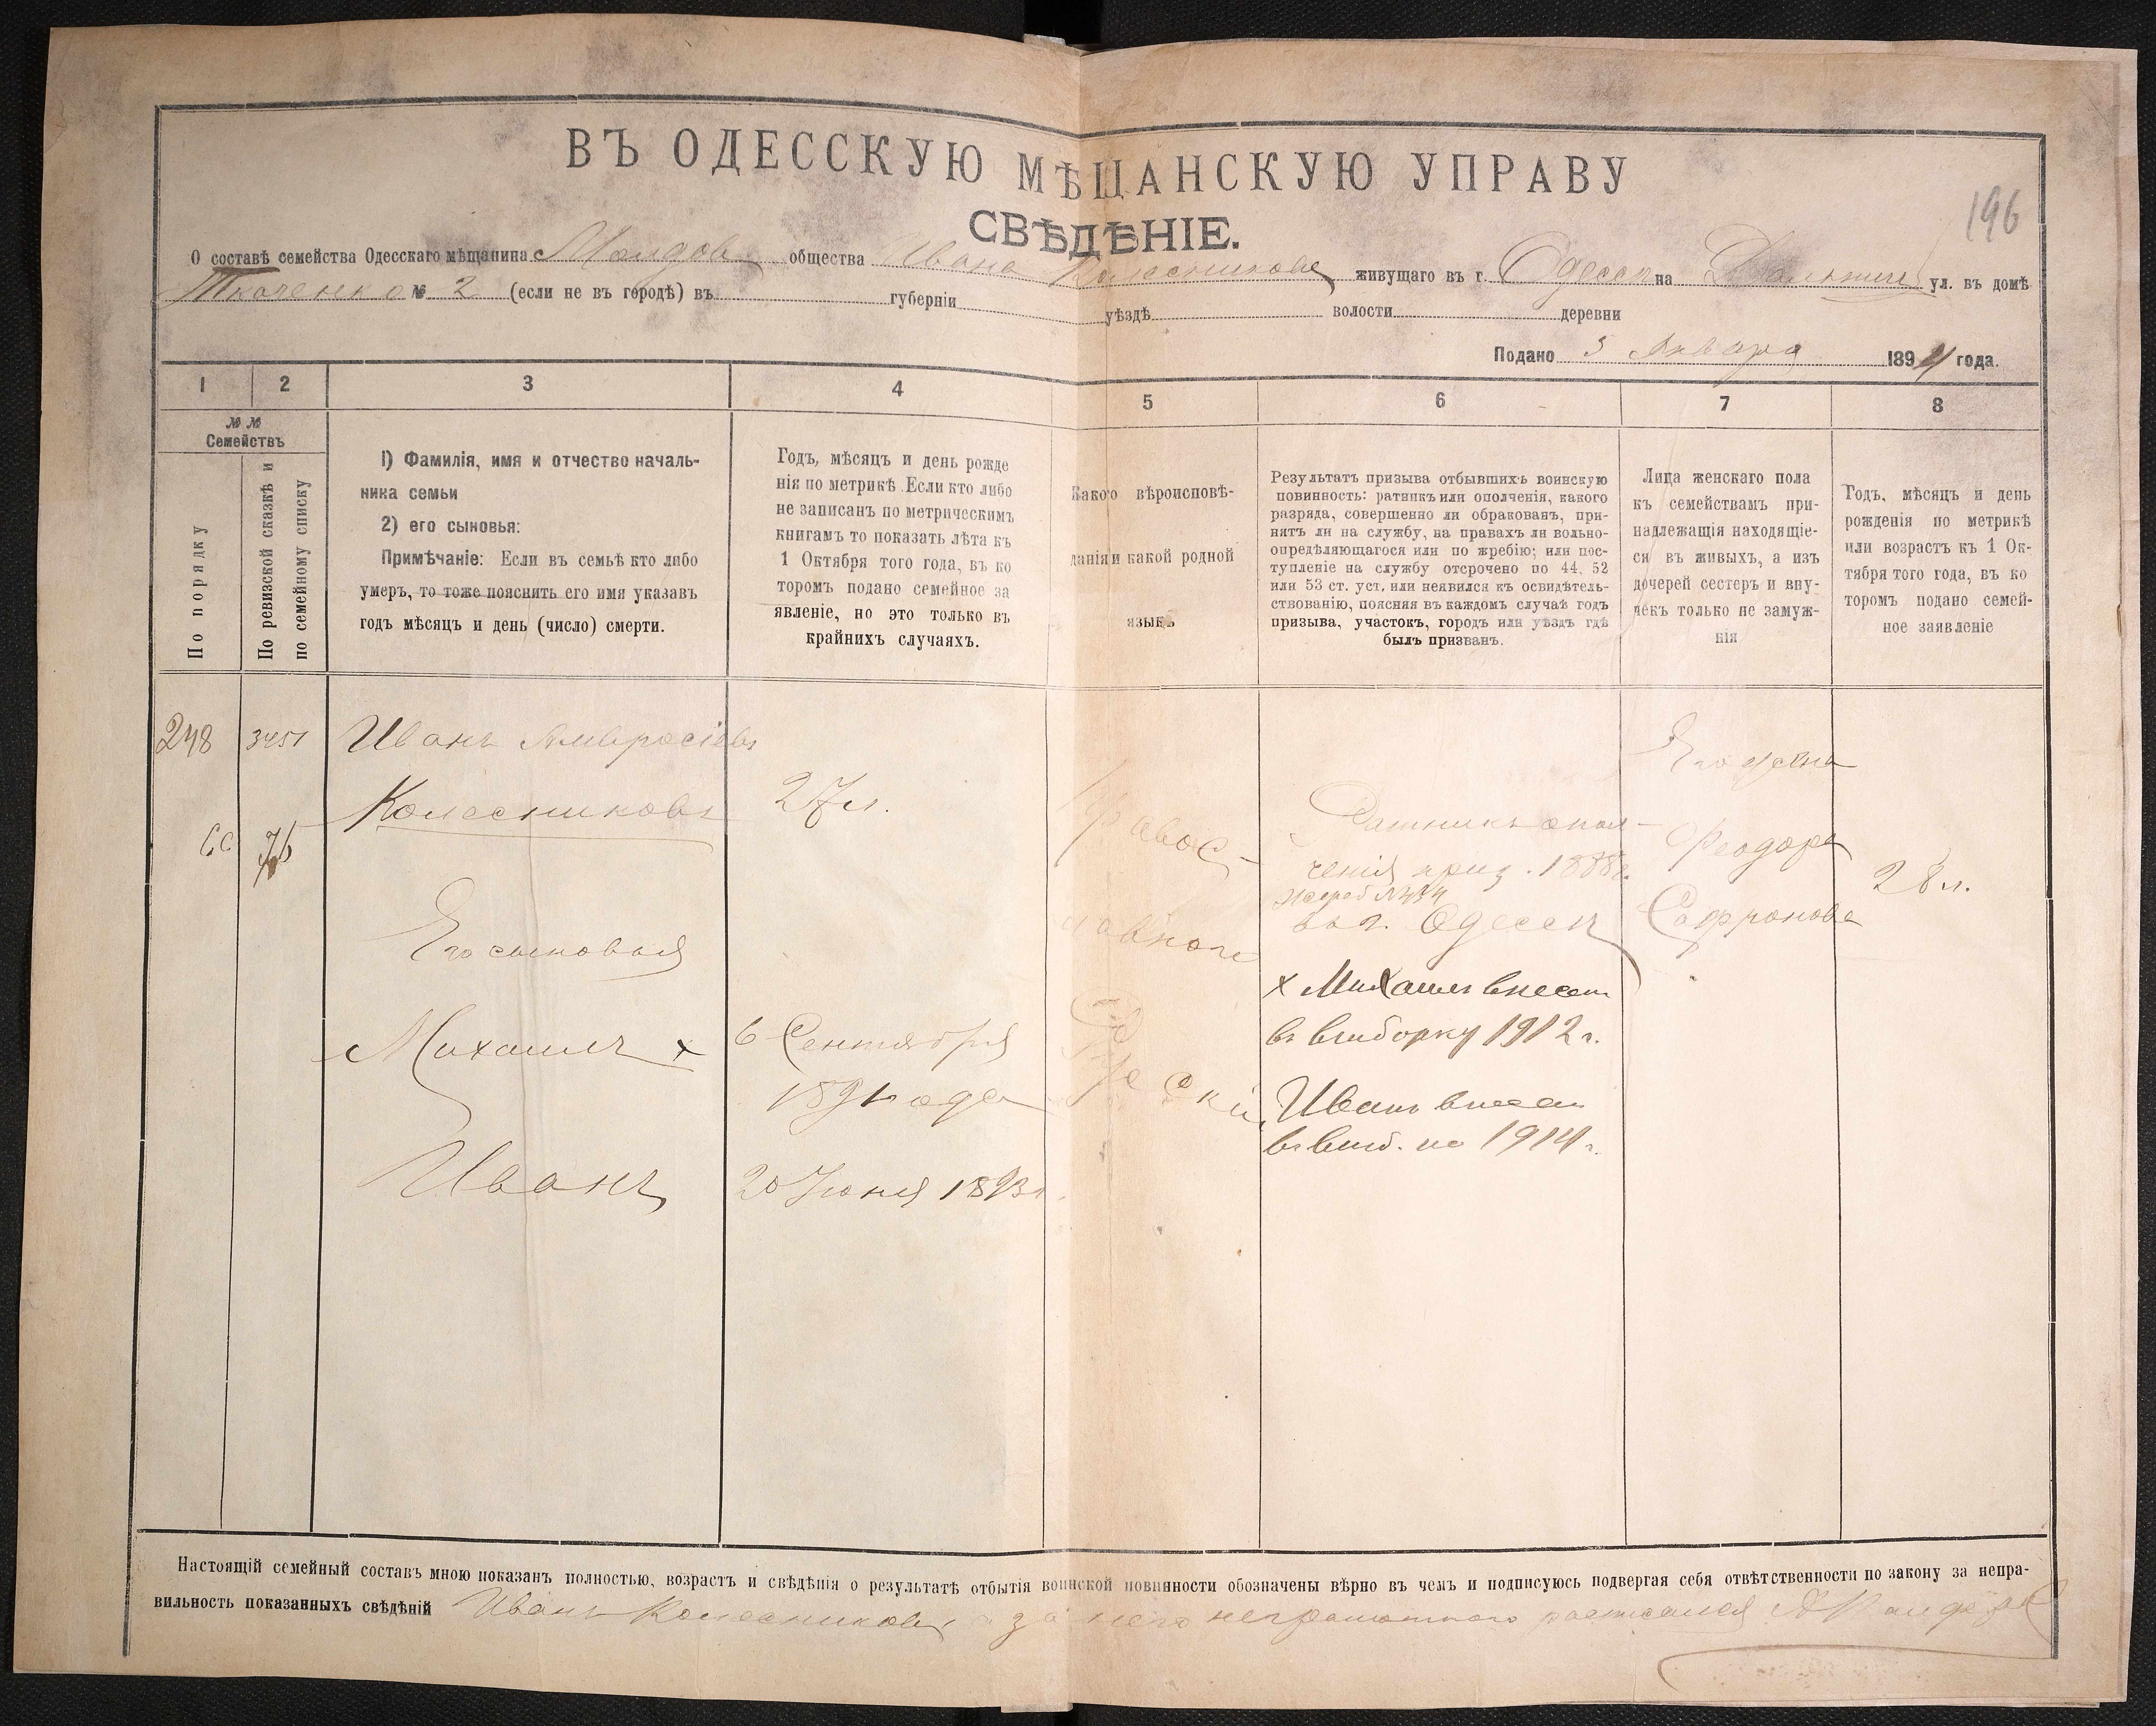 196
ВЪ ОДЕССКУЮ МѢЩАНСКУЮ УПРАВУ
СВѢДѢНІЕ.
О составѣ семейства Одесскаго мѣщанина Молдов общества Ивана Колесникова живущаго въ г. Одессе на Дальницк ул. въ домѣ
Ткаченко № 2 (если не въ городѣ) въ губерніи уѣздѣ волости деревни
Подано 5 Января 1894 года.
1 2 3 4 5 6 7 8
№ № Семействъ
По порядку
По ревизской сказкѣ и по семейному списку
1) Фамилія, имя и отчество началь-
ника семьи
2) его сыновья:
Примѣчаніе: Если въ семьѣ кто либо
умеръ, то тоже пояснить его имя указавъ
годъ мѣсяцъ и день (число) смерти.
Годъ, мѣсяцъ и день рожде
нія по метрикѣ. Если кто либо
не записанъ по метрическимъ
книгамъ то показать лѣта къ
1 Октября того года, въ ко
торомъ подано семейное за
явленіе, но это только въ
крайнихъ случаяхъ.
Какого вѣроисповѣ-
данія и какой родной
языкъ
Результатъ призыва отбывшихъ воинскую
повинность: ратникъ или ополченія, какого
разряда, совершенно ли обракованъ, при-
нятъ ли на службу, на правахъ ли вольно-
опредѣляющагося или по жребію; или пос-
тупленіе на службу отсрочено по 44, 52
или 53 ст. уст. или неявился къ освидѣтель-
ствованію, поясняя въ каждомъ случаѣ годъ
призыва, участокъ, городъ или уѣздъ гдѣ
былъ призванъ.
Лица женскаго пола
къ семействамъ при-
надлежащія находящіе-
ся въ живыхъ, а изъ
дочерей сестеръ и вну-
чекъ только не замуж-
нія
Годъ, мѣсяцъ и день
рожденія по метрикѣ
или возрастъ къ 1 Ок-
тября того года, въ ко
торомъ подано семей-
ное заявленіе
248 3451 Иванъ Амвросіевъ
Колесниковъ 27 л.
Его сыновья
Михаилъ х 6 Сентября
1891 года
Иванъ 20 Іюня 1893 г.
Правос-
лавного
Русскій
Ратникъ опол-
ченія приз. 1888 г.
въ г. Одессе
х Михаилъ внесен
въ выборку 1912 г.
Иванъ внесен
въ выб. на 1914 г.
Его жена
Феодора
Сафронова
28 л.
Настоящій семейный составъ мною показанъ полностью, возрастъ и свѣдѣнія о результатѣ отбытія воинской повинности обозначены вѣрно въ чемъ и подписуюсь подвергая себя отвѣтственности по закону за непра-
вильность показанныхъ свѣдѣній Иванъ Колесниковъ а за него неграмотного расписался